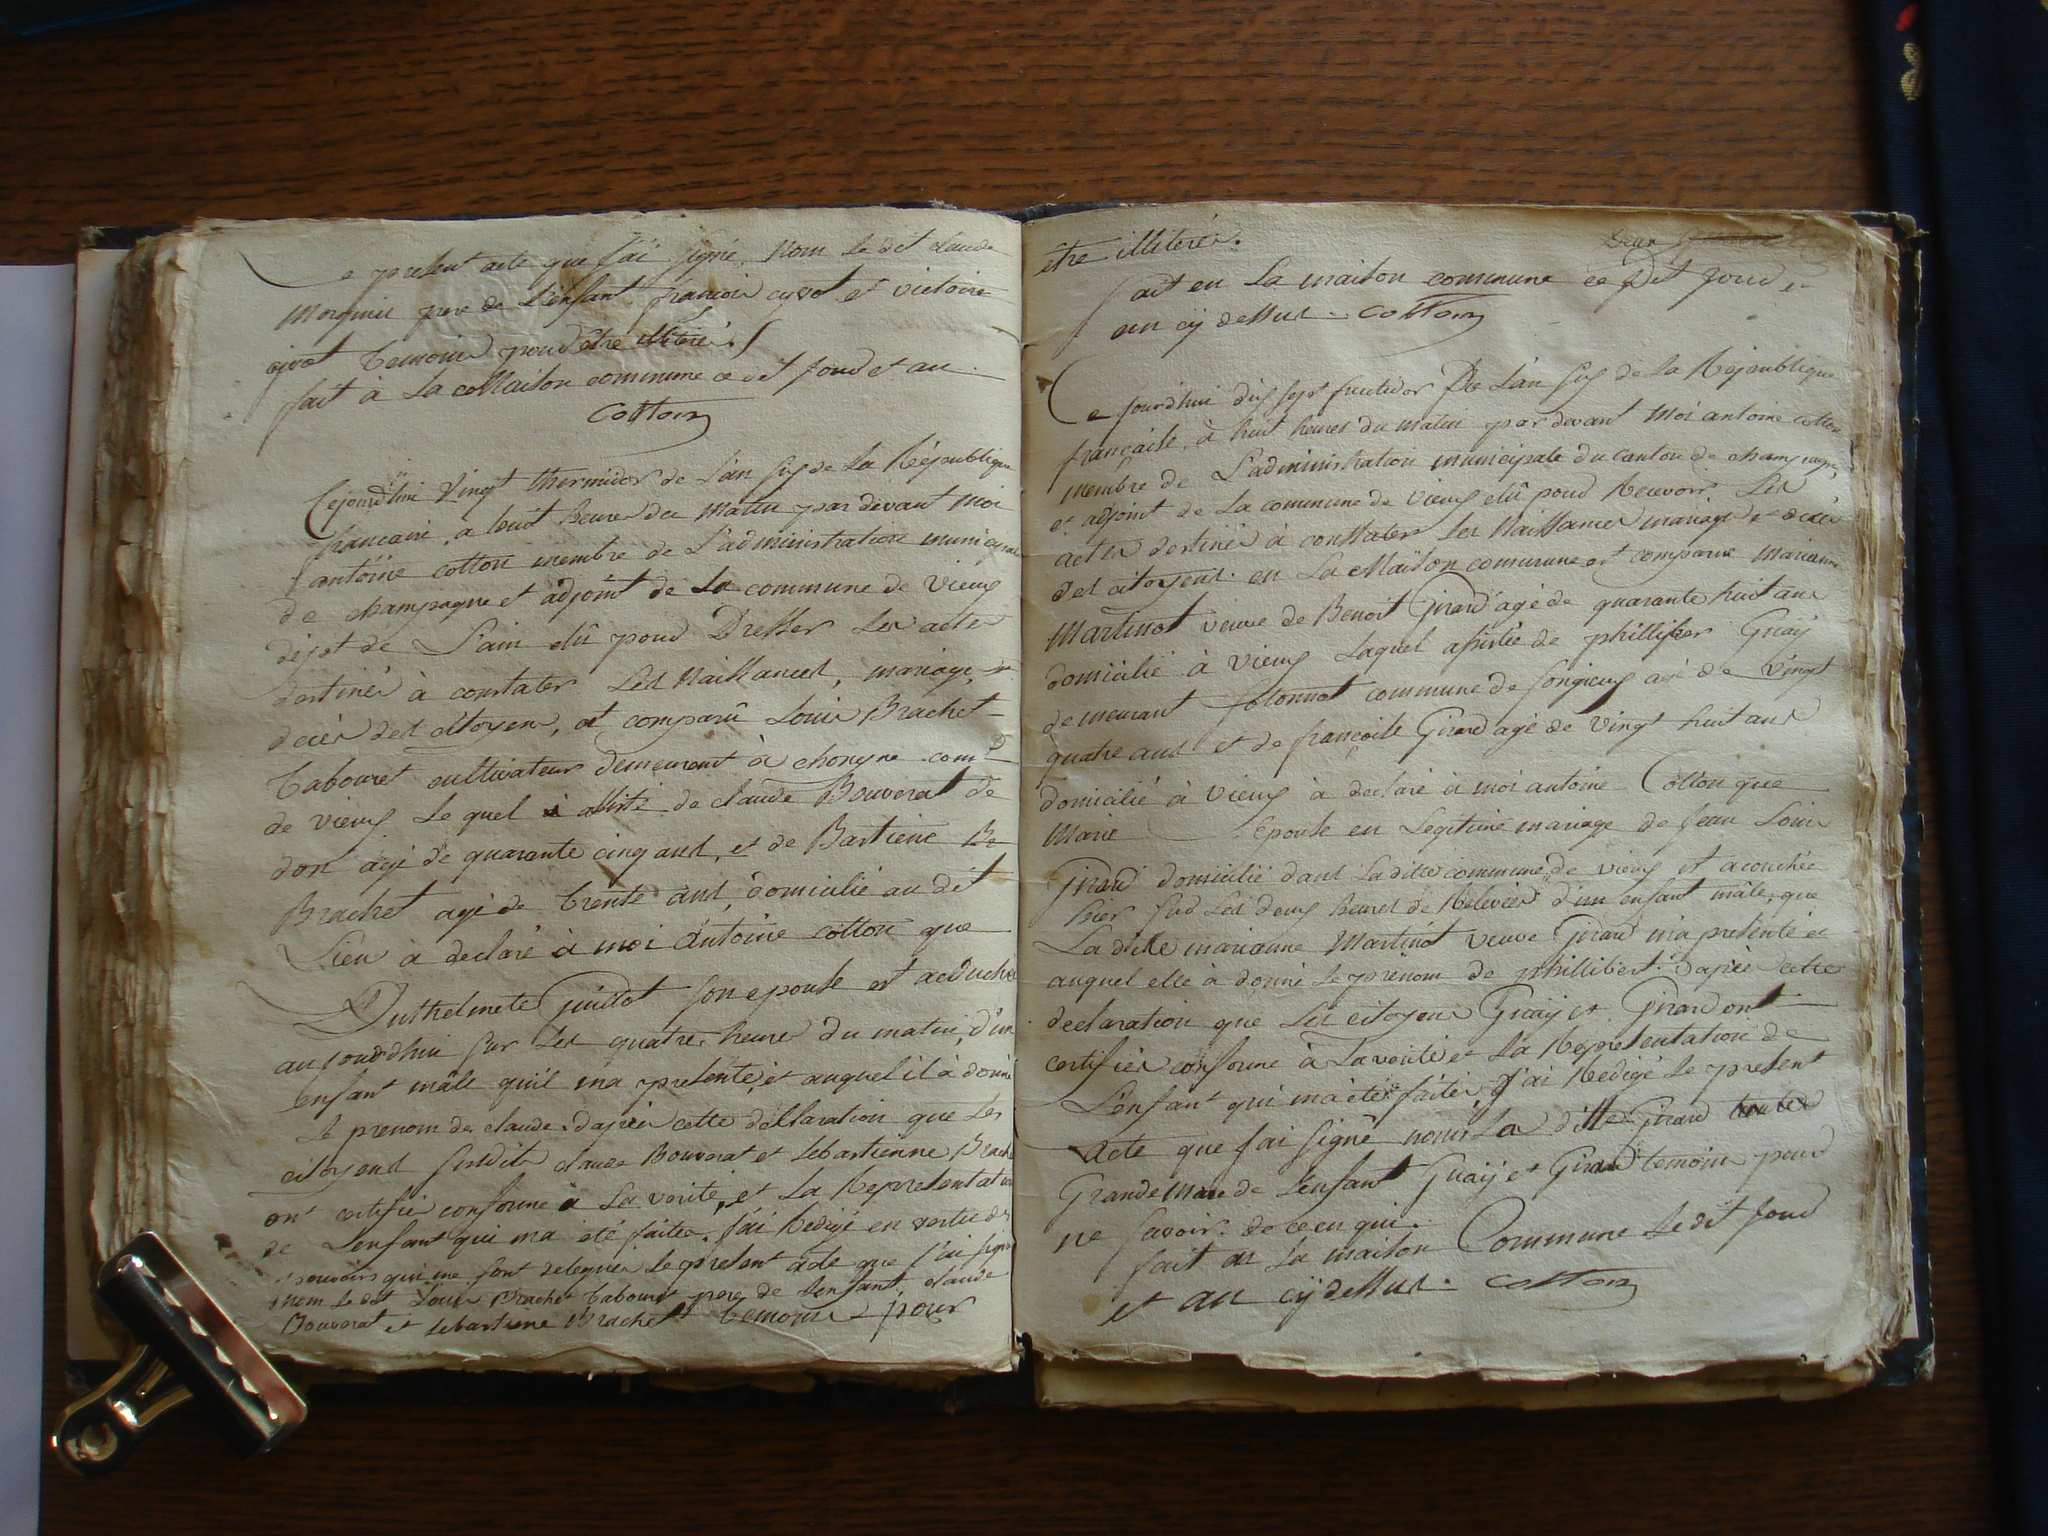 Ce present acte que j'ai signé, nom le dit claude
morginier pere de L'enfant francois cyvot et victoire
cyvot temoins pour être illiteré.
fait à La co Maison commune ce dit jour et an.
Cotton
Cejourdhui vingt thermidor de L'an six de La République
francaise, a huit heure du matin par devant moi
antoine cotton membre de L'administration municipale
de champagne et adjoint de La commune de vieux
dept de L'ain elû pour Dresser Les acte
destinés à constater Les Naissances, mariage, et
decès des citoyens, est comparû Louis Brachet
tabouret cultivateur demeurant à chongne com
de vieux Lequel à assisté de claude Bouverat de
don agé de quarante cinq ans, et de Bastiene Be
Brachet agé de trente ans, domicilié au dit
Lieu à declaré à moi Antoine cotton que
Guillot son epouse est accouché
aujourdhui sur Les quatre heure du matin, d'un
enfant mâle qu'il m'a presenté, et auquel il à donné
le prenom de claude. dapres cette déclaration que Les
citoyens susdits claude Bouverat et sebastienne Brach
ont certifié conforme à La verité, et La Representation
de L'enfant qui m'a été faite. J'ai Redigé en vertu des
pouvoirs qui me sont delegués Le present acte que j'ai signé
nom le dit Louis Brachet tabouret pere de Lenfant, claude
Bouverat et sebastiene Brachet temoins pour
être illiterés.
fait en La maison commune ce dit jour et
an cÿ dessus. Cotton
Ce jourdhui dix sept fructidor De L'an six de La République
française, à huit heures du matin par devant Moi antoine cotton
membre de L'administration municipale du canton de champagne,
et adjoint de La commune de vieux elû pour Recevoir Les
actes destinés à constater Les Naissances mariage et decès
des citoyens. en La Maison commune est comparue marianne
Martinot veuve de Benoit Girard agé de quarante huit ans
domicilié à vieux Laquel assistée de phillibert Guaÿ
demeurant fotonnot commune de songieux agé de vingt
quatre ans et de françoise Girard agé de vingt huit ans
domicilié à vieux à declaré à moi antoine Cotton que
Marie Epouse en Legitime mariage de Jean Louis
Girard domicilié dans La dite commune de vieux et acouchée
hier sur Les deux heures de Relevées d'un enfant mâle, que
La dite marianne Martinot veuve Girard m'a presenté et
auquel elle à donné le prénom de phillibert. dapres cette
declaration que Les citoyens Guaÿ et Girard ont
certifiés conforme à La verité et La Representation de
L'enfant qui m'a été faite, J'ai Redigé Le present
Acte que j'ai signé nom La dite Girard
Grande Mere de L'enfant Guaÿ et Girard temoins pour
ne savoir. de ce enqui.
fait en La maison Commune Le dit jour
et an cÿ dessus. Cotton